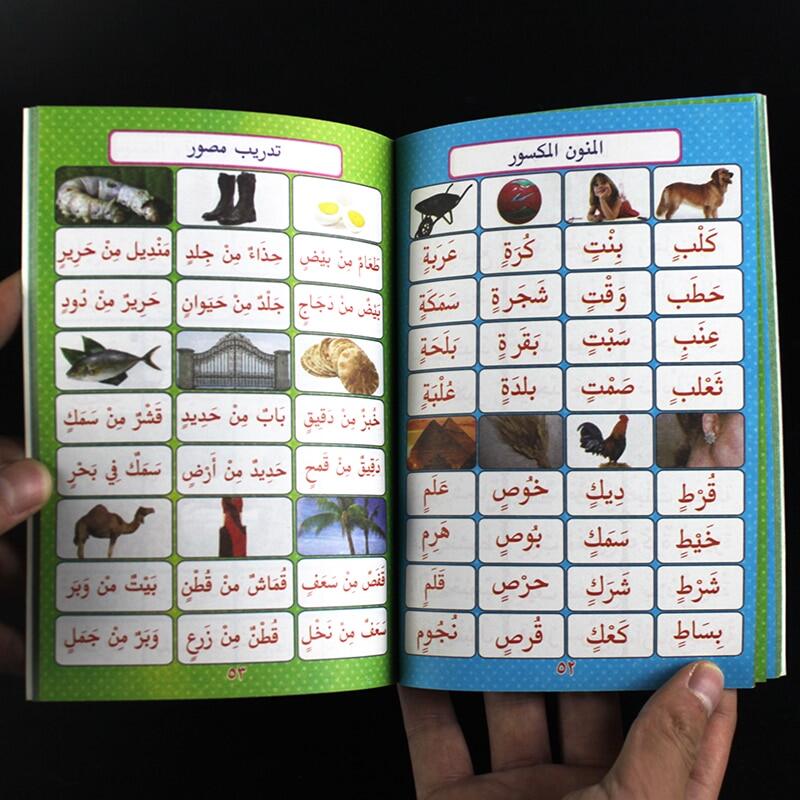 المنون المكسور
كَلْبٍ بِنْتٍ كُرَةٍ عَرَبَةٍ
حَطَبٍ وَقْتٍ شَجَرَةٍ سَمَكَةٍ
عِنَبٍ سَبْتٍ بَقَرَةٍ بَلَحَةٍ
ثَعْلبٍ صَمْتٍ بلدَةٍ عُلْبَةٍ
قُرْطٍ دِيكٍ خُوصٍ عَلَمٍ
خَيْطٍ سَمَكٍ بُوصٍ هَرِمٍ
شَرْطٍ شَرَكٍ حرْصٍ قَلَمٍ
بِسَاطٍ كَعْكٍ قُرصٍ نُجُومٍ
٥٢
تدريب مصور
طَعَامٌ مِنْ بيْضٍ حِذَاءٌ مِنْ جِلدٍ مَنْدِيل مِنْ حَرِيرٍ
بَيْضٌ مِنْ دَجَاجٍ جَلْدٌ مِنْ حَيَوَانٍ حَرِيرٌ مِنْ دُودٍ
خُبزٌ مِنْ دَقِيقٍ بَابٌ مِنْ حَدِيدٍ قَشْرٌ مِنْ سَمَكٍ
دَقِيقٌ مِنْ قَمحٍ حَدِيدٌ مِنْ أَرْضٍ سَمَكٌ فِي بَحْرٍ
قَفَصٌ مِنْ سَعَفٍ قُمَاشٌ مِنْ قُطْنٍ بَيْتٌ مِنْ وَبَرٍ
سَعَفٌ مِنْ نَخْلٍ قُطْنٌ مِنْ زَرعٍ وَبَرٌ مِنْ جَمَلٍ
٥٣